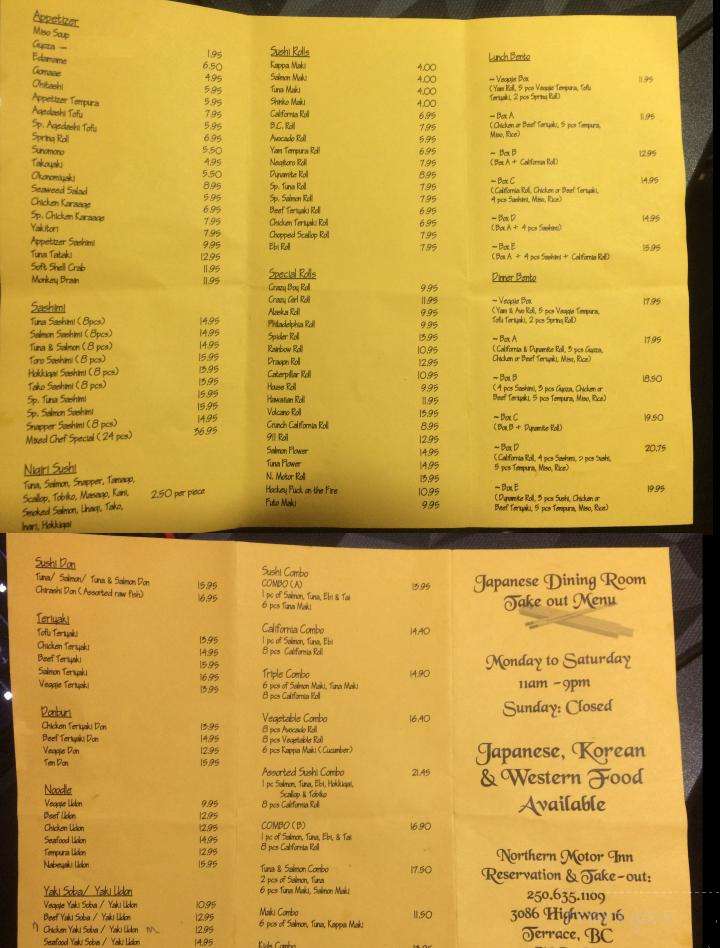 Appetizer
Miso Soup
Gyoza 1.95
Edamame 6.50
Gomaae 4.95
Ohitashi 5.95
Appetizer Tempura 5.95
Agedashi Tofu 7.95
Sp. Agedashi Tofu 5.95
Spring Roll 6.95
Sunomono 5.50
Takoyaki 4.95
Okonomiyaki 5.50
Seaweed Salad 8.95
Chicken Karaage 5.95
Sp. Chicken Karaage 6.95
Yakitori 7.95
Appetizer Sashimi 9.95
Tuna Tataki 12.95
Soft Shell Crab 11.95
Monkey Brain 11.95
Sashimi
Tuna Sashimi (8pcs) 14.95
Salmon Sashimi (8pcs) 14.95
Tuna & Salmon (8 pcs) 14.95
Toro Sashimi (8 pcs) 15.95
Hokkigai Sashimi (8 pcs) 13.95
Tako Sashimi (8 pcs) 13.95
Sp. Tuna Sashimi 15.95
Sp. Salmon Sashimi 15.95
Snapper Sashimi (8 pcs) 14.95
Mixed Chef Special (24 pcs) 36.95
Nigiri Sushi
Tuna, Salmon, Snapper, Tamago,
Scallop, Tobiko, Masago, Kani, 2.50 per piece
Smoked Salmon, Unagi, Tako,
Inari, Hokkigai
Sushi Rolls
Kappa Maki 4.00
Salmon Maki 4.00
Tuna Maki 4.00
Shinko Maki 4.00
California Roll 6.95
B.C. Roll 7.95
Avocado Roll 5.95
Yam Tempura Roll 6.95
Negitoro Roll 7.95
Dynamite Roll 8.95
Sp. Tuna Roll 7.95
Sp. Salmon Roll 7.95
Beef Teriyaki Roll 6.95
Chicken Teriyaki Roll 6.95
Chopped Scallop Roll 7.95
Ebi Roll 7.95
Special Rolls
Crazy Boy Roll 9.95
Crazy Girl Roll 11.95
Alaska Roll 9.95
Philadelphia Roll 9.95
Spider Roll 13.95
Rainbow Roll 10.95
Dragon Roll 12.95
Caterpillar Roll 10.95
House Roll 9.95
Hawaiian Roll 11.95
Volcano Roll 13.95
Crunch California Roll 8.95
911 Roll 12.95
Salmon Flower 14.95
Tuna Flower 14.95
N. Motor Roll 13.95
Hockey Puck on the Fire 10.95
Futo Maki 9.95
Lunch Bento
~ Veggie Box 11.95
(Yam Roll, 5 pcs Veggie Tempura, Tofu
Teriyaki, 2 pcs Spring Roll)
~ Box A 11.95
(Chicken or Beef Teriyaki, 5 pcs Tempura,
Miso, Rice)
~ Box B 12.95
(Box A + California Roll)
~ Box C 14.95
(California Roll, Chicken or Beef Teriyaki,
4 pcs Sashimi, Miso, Rice)
~ Box D 14.95
(Box A + 4 pcs Sashimi)
~ Box E 15.95
(Box A + 4 pcs Sashimi + California Roll)
Dinner Bento
~ Veggie Box 17.95
(Yam & Avo Roll, 5 pcs Veggie Tempura,
Tofu Teriyaki, 2 pcs Spring Roll)
~ Box A 17.95
(California & Dynamite Roll, 3 pcs Gyoza,
Chicken or Beef Teriyaki, Miso, Rice)
~ Box B 18.50
(4 pcs Sashimi, 3 pcs Gyoza, Chicken or
Beef Teriyaki, 5 pcs Tempura, Miso, Rice)
~ Box C 19.50
(Box B + Dynamite Roll)
~ Box D 20.75
(California Roll, 4 pcs Sashimi, pcs Sushi,
5 pcs Tempura, Miso, Rice)
~ Box E 19.95
(Dynamite Roll, 3 pcs Sushi, Chicken or
Beef Teriyaki, 5 pcs Tempura, Miso, Rice)
Sushi Don
Tuna/ Salmon/ Tuna & Salmon Don 15.95
Chirashi Don (Assorted raw fish) 16.95
Teriyaki
Tofu Teriyaki 13.95
Chicken Teriyaki 14.95
Beef Teriyaki 15.95
Salmon Teriyaki 16.95
Veggie Teriyaki 13.95
Donburi
Chicken Teriyaki Don 13.95
Beef Teriyaki Don 14.95
Veggie Don 12.95
Ten Don 15.95
Noodle
Veggie Udon 9.95
Beef Udon 12.95
Chicken Udon 12.95
Seafood Udon 14.95
Tempura Udon 12.95
Nabeyaki Udon 15.95
Yaki Soba/ Yaki Udon
Veggie Yaki Soba / Yaki Udon 10.95
Beef Yaki Soba / Yaki Udon 12.95
Chicken Yaki Soba / Yaki Udon 12.95
Seafood Yaki Soba / Yaki Udon 14.95
Sushi Combo
COMBO (A) 13.95
1 pc of Salmon, Tuna, Ebi & Tai
6 pcs Tuna Maki
California Combo 14.40
1 pc of Salmon, Tuna, Ebi
8 pcs California Roll
Triple Combo 14.90
6 pcs of Salmon Maki, Tuna Maki
8 pcs California Roll
Vegetable Combo 16.40
8 pcs Avocado Roll
8 pcs Vegetable Roll
6 pcs Kappa Maki (Cucumber)
Assorted Sushi Combo 21.45
1 pc Salmon, Tuna, Ebi, Hokkigai,
Scallop & Tobiko
8 pcs California Roll
COMBO (B) 16.90
1 pc of Salmon, Tuna, Ebi, & Tai
8 pcs California Roll
Tuna & Salmon Combo 17.50
2 pcs of Salmon, Tuna
6 pcs Tuna Maki, Salmon Maki
Maki Combo 11.50
6 pcs of Salmon, Tuna, Kappa Maki
Japanese Dining Room
Take out Menu
Monday to Saturday
11am -9pm
Sunday: Closed
Japanese, Korean
& Western Food
Available
Northern Motor Inn
Reservation & Take-out:
250.635.1109
3086 Highway 16
Terrace, BC